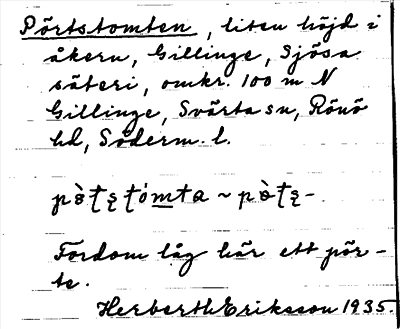 Pörtstomten, liten höjd i
åkern, Gillinge, Sjösa
säteri, omkr. 100 m N
Gillinge, Svärta sn, Rönö
hd, Söderm. l.
pò̈ʈʂʈómta ~ pò̈ʈʂ-
Fordom låg här ett pör-
te.
Herberth Eriksson 1935.